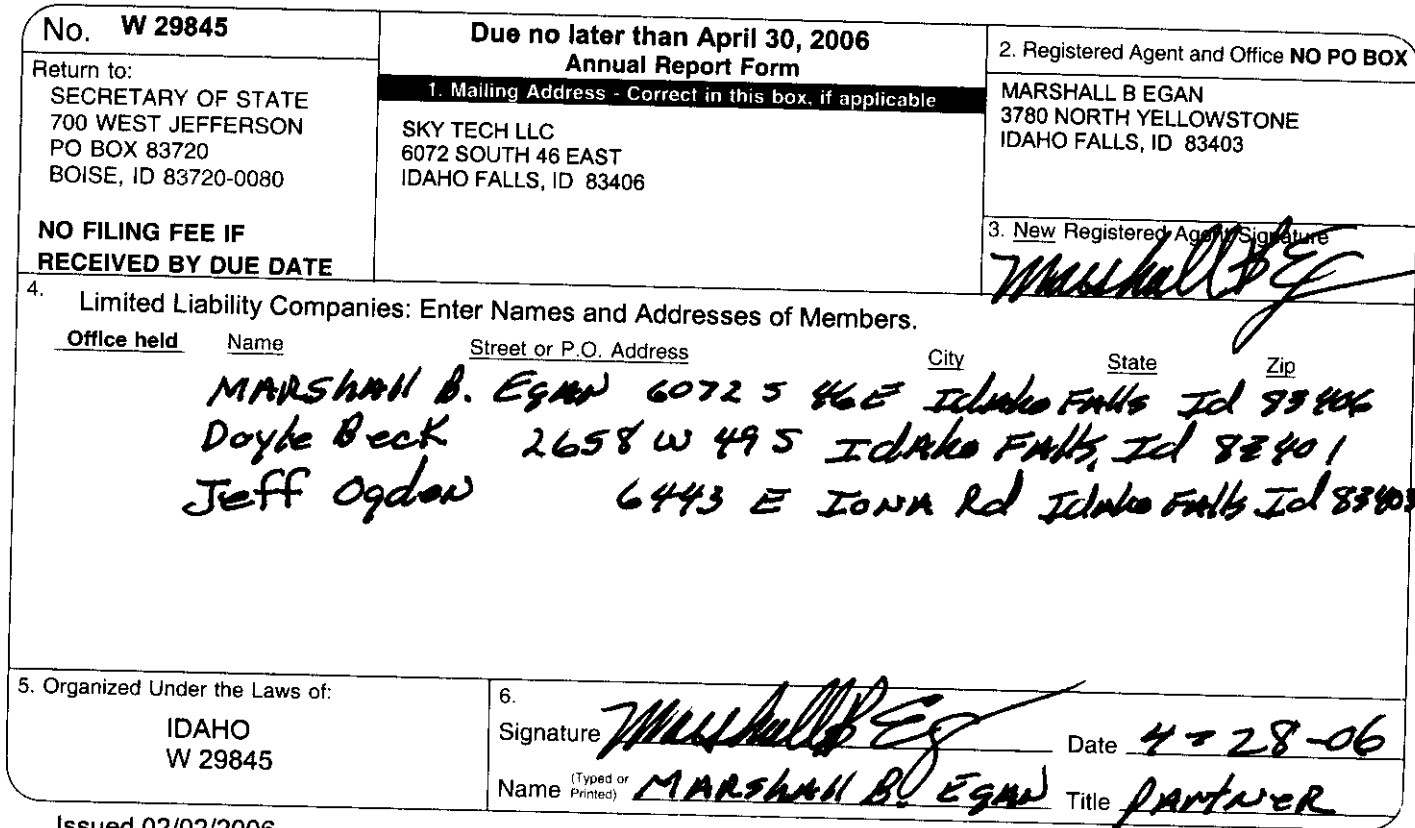 No. W 29845
Return to:
SECRETARY OF STATE
700 WEST JEFFERSON
PO BOX 83720
BOISE, ID 83720-0080
NO FILING FEE IF
RECEIVED BY DUE DATE
Due no later than April 30, 2006
Annual Report Form
1. Mailing Address - Correct in this box, if applicable
SKY TECH LLC
6072 SOUTH 46 EAST
IDAHO FALLS, ID 83406
2. Registered Agent and Office NO PO BOX
MARSHALL B EGAN
3780 NORTH YELLOWSTONE
IDAHO FALLS, ID 83403
3. New Registered Agent Signature
Marshall B Eg
4. Limited Liability Companies: Enter Names and Addresses of Members.
Office held Name Street or P.O. Address City State Zip
MARShAll B. EgAN 6072 S 46 E Idaho FAlls Id 83406
Doyle Beck 2658 W 49 S IdAho FAlls, Id 83401
Jeff Ogden 6443 E IONA Rd Idaho FAlls Id 83403
5. Organized Under the Laws of:
IDAHO
W 29845
6.
Signature Marshall B Eg Date 4-28-06
Name (Typed or Printed) MARShAll B. EgAN Title PArtNeR
Issued 02/02/2006